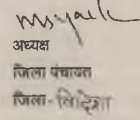 अध्यक्ष
जिला पंचायत
जिला - विदिशा